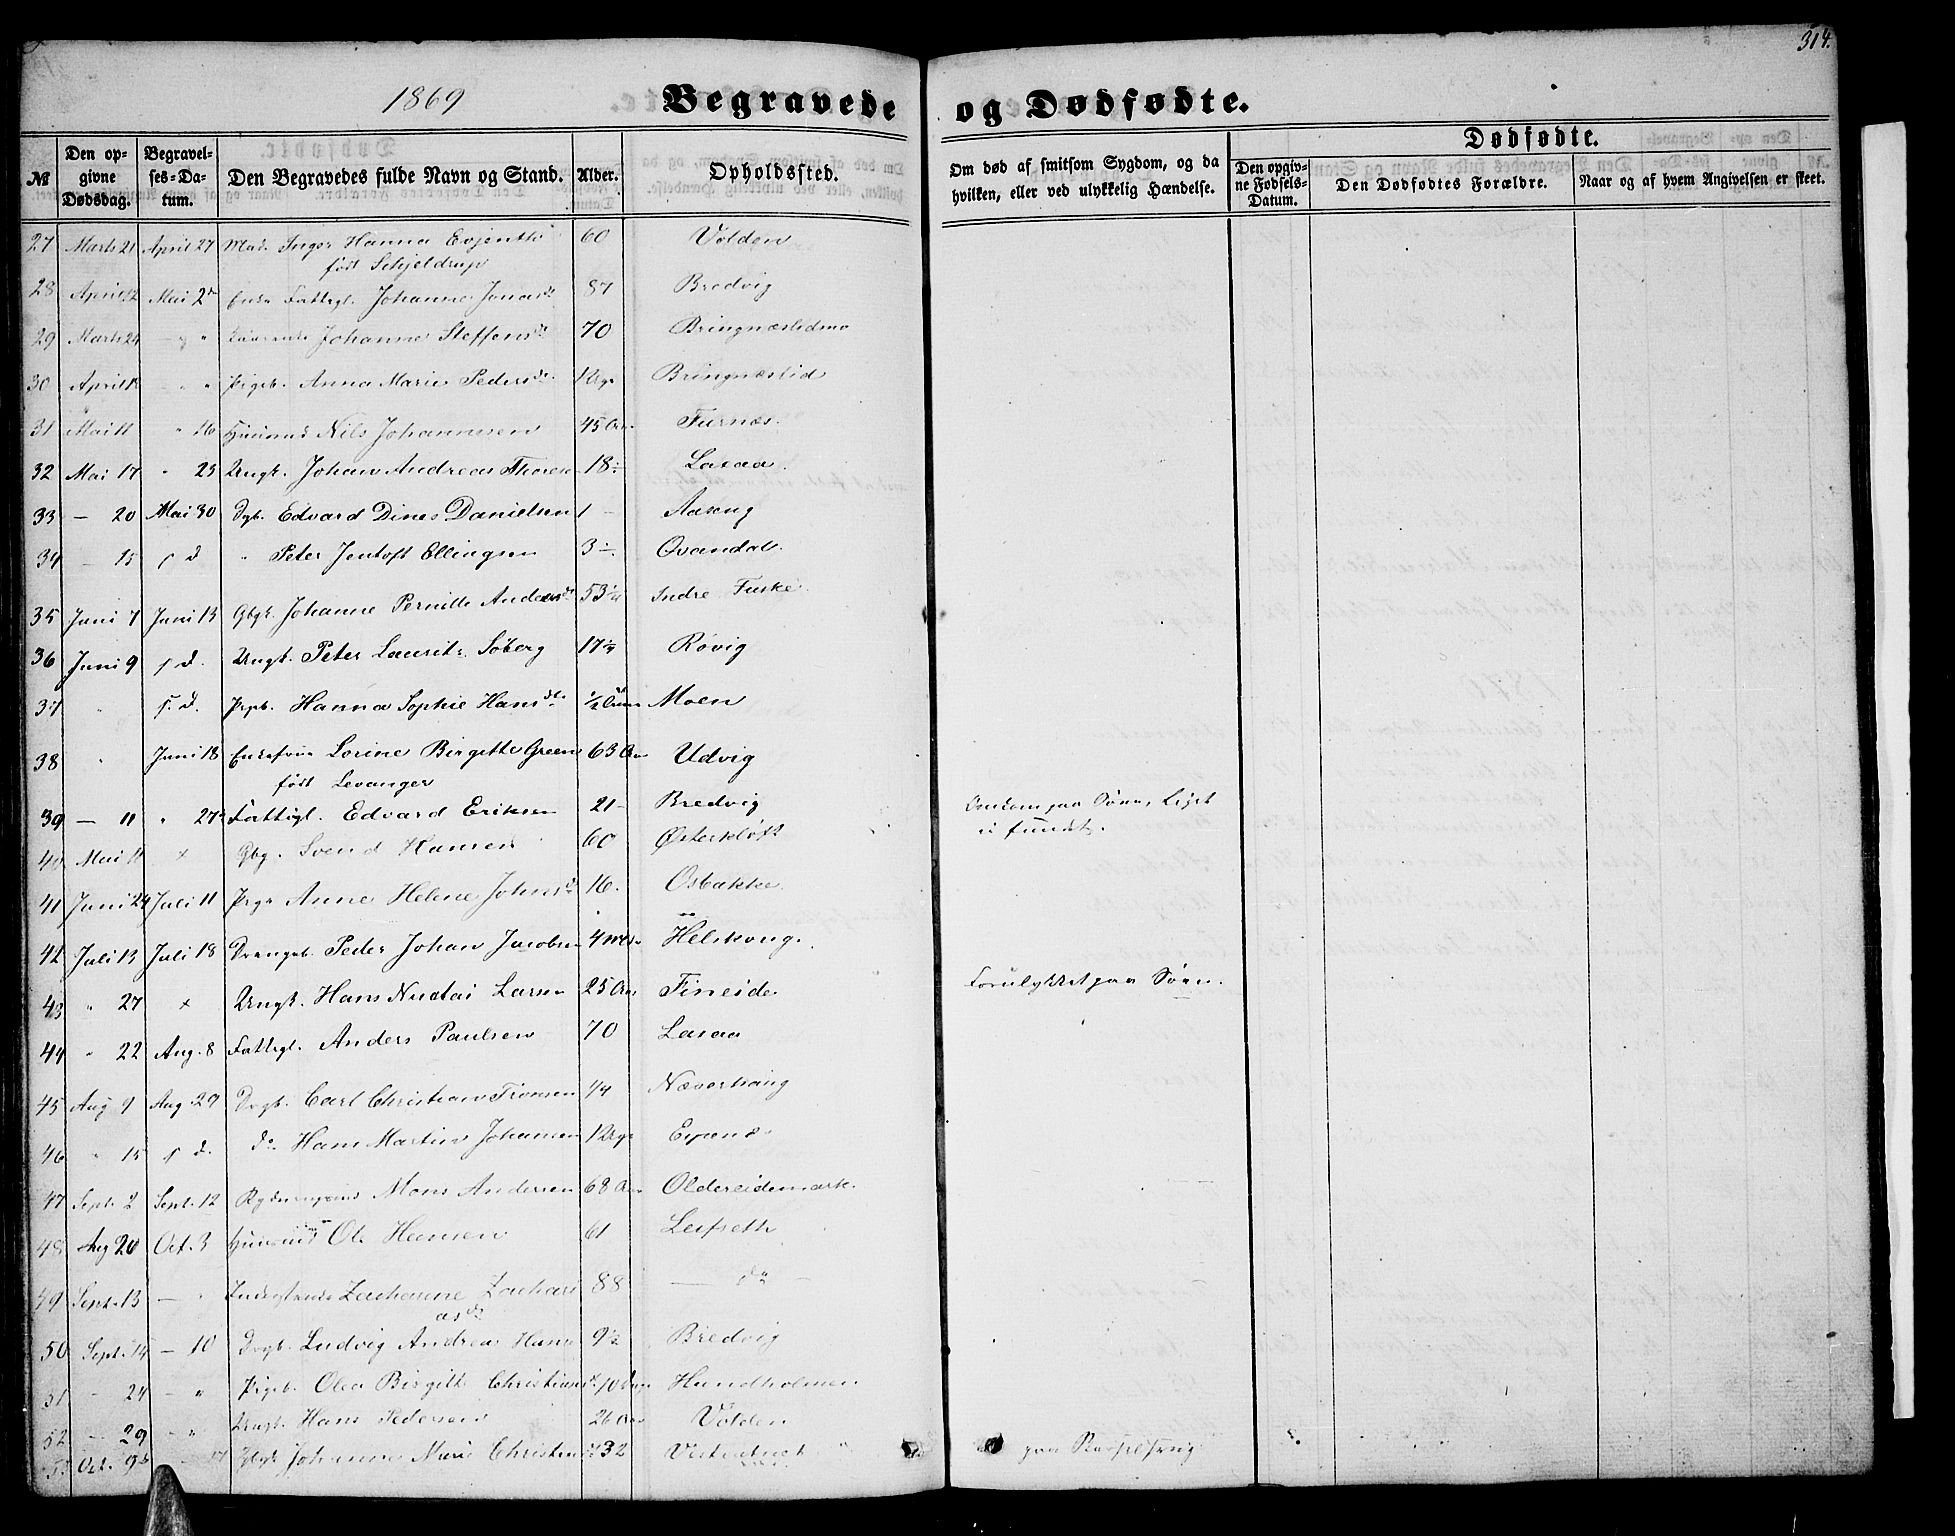 314.
1869
Begravede og Dødfødte.
Dødfødte.
№ Den opgivne Dødsdag. Begravelses-Datum. Den Begravedes fulde Navn og Stand. Alder. Opholdssted. Om død af smitsom Sygdom, og da hvilken, eller ved ulykkelig Hændelse. Den opgivne Fødsels-Datum. Den Dødfødtes Forældre. Naar og af hvem Angivelsen er skeet.
27 Marts 21 April 27 Mad. Inger Hanna Evjenth 60 Volden
født Schjeldrup
28 April 12 Mai 2den Enke Fattigl. Johanne Jonasdr 87 Bredvig
29 Marts 24 — " " Johanne Steffensdr 70 Bringnæslidmo
30 April " " Pigeb. Anna Marie Pedersdr. Bringnæslid
31 Mai 11 " 16 Huusmd Nils Johannesen 45 Aar Furnæs.
32 Mai 17 " 23 Ungk. Johan Andreas Thoresen 18 Lasaa.
33 — 20 Mai 30 Dgb. Edvard Dines Danielsen 1 — Aaseng
34 — 15 s d " Peter Jentoft Ellingsen 3 Qvandal.
35 Juni 7 Juni 13 Gbgk. Johanne Pernille Andersdr 53 Indre Fuske
36 Juni 9 s d. Ungk. Peter Lauritz Soberg 17 Røvig
37 " s. d. Pgb. Hanna Sophie Hansdr. 1/2 Moen
38 " Juni 18 Enkefrue Lorine Birgitte Green 63 Aar Udvig
født Levanger
39 — 11 " 27 Fattigl. Edvard Eriksen 21 — Bredvig Omkom paa Søen, Liget
ei fundet.
40 Mai 11 × Gbg. Svend Hansen 60 Østerkløft
41 Juni 24 Juli 11 Pige Anne Helene Johnsdr 16. Osbakke
42 Juli 13 Juli 18 Drengeb. Peder Johan Jacobsen 4 Helskong.
43 " 27 × Ungk. Hans Nicolai Larsen 25 Aar Fineide Forulykket paa Søen.
44 " 22 Aug. 8 Fattigl. Anders Paulsen 70 Lasaa
45 Aug 9 Aug. 29 Dngb. Carl Christian Tronsen 1/4 Næverhaug
46 " 15 s d. do. Hans Martin Johansen
47 Sept. 2 Sept. 12 Mons Andersen 68 Aar Oldereidemark.
48 Aug 20 Oct. 3 Huusmd Ole Hansen 61 Leifseth
49 Sept. 13 — " Inderstkone Zachanne Zachari 88 — do —
asdr
50 Sept. 14 — 10 Dngb. Ludvig Andreas Hansen 9 1/2 Bredvig
51 " 24 — " Pigeb. Olea Birgitte Christiansdr. 10 Hundholmen
52 — 29 — " Ungk. Hans Pedersen 26 Aar Volden
53 Oct. 9de — 17 Gbgk Johanne Marie Christensdr 32 paa Barselseng